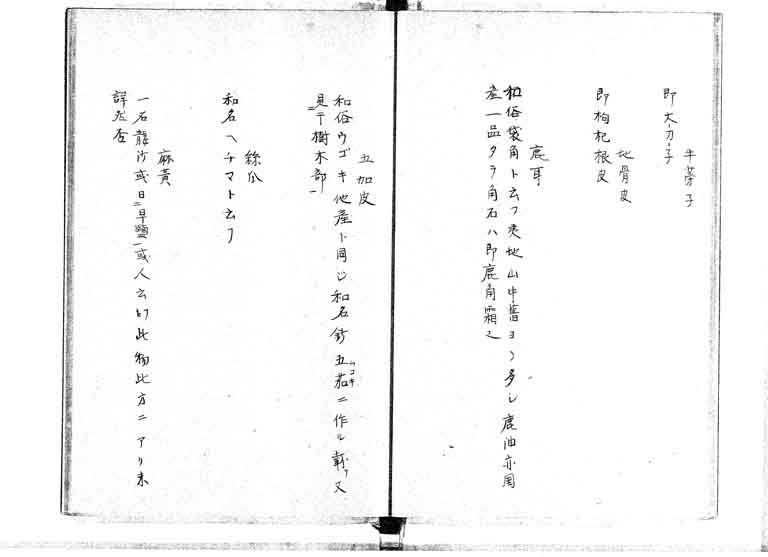 牛蒡子
即大力子
地骨皮
即枸杞根皮
鹿耳
和俗袋角ト云フ夷地山中舊ヨリ多シ鹿油亦国
産一品タラ角石ハ即鹿角霜之
五加皮
和俗ウゴキ他産ト同シ和名針五茄ニ作ル載ヲ又
見于樹木部
絲瓜
和名ヘチマト云フ
麻黄
一石龍沙或日早鹽或人云此物此方ニアリ未
詳然否